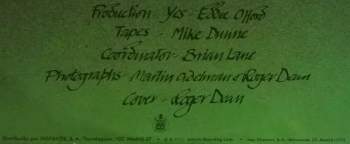 Production - Yes - Eddie Offord
Tapes - Mike Dunne
Coordinator - Brian Lane
Photographs - Martin Adelman & Roger Dean
Cover - Roger Dean